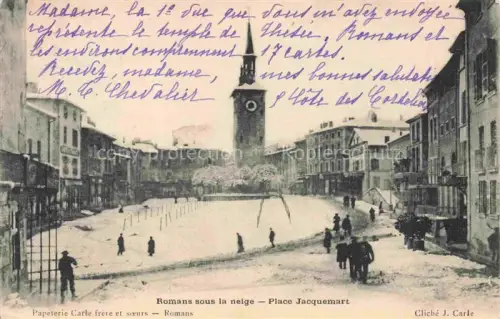 Madame, la 1ère vue que vous m'avez envoyée
représente le temple de Thésée, Romans et
les environs comprennent 17 cartes.
Recevez, madame, mes bonnes salutations
M. C. Chevalier, 9 Côte des Cordeliers
Romans sous la neige — Place Jacquemart
Papeterie Carle frère et sœurs — Romans
Cliché J. Carle